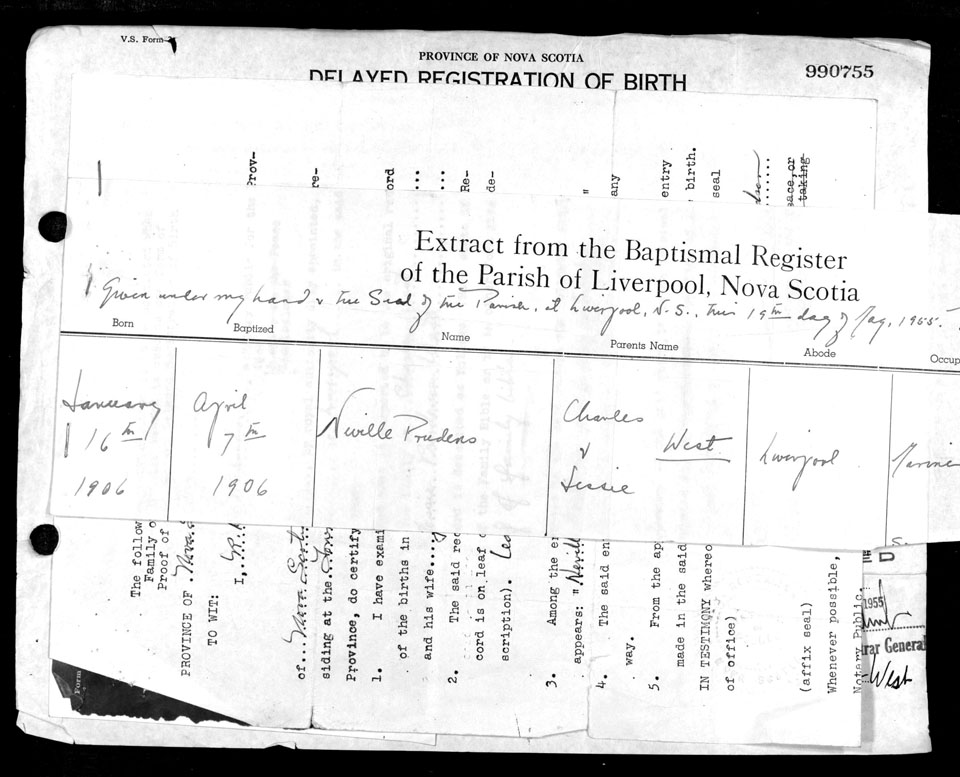 V.S. Form
PROVINCE OF NOVA SCOTIA
990755
DELAYED REGISTRATION OF BIRTH
Prov-
re-
ord
....
....
Re-
de-
"
any
entry
birth.
seal
eace, or
taking
Extract from the Baptismal Register
of the Parish of Liverpool, Nova Scotia
Given under my hand & the Seal of the Parish, at Liverpool, N.S., this 19th day of May, 1955.
Born Baptized Name Parents Name Abode Occup
January 16th 1906
April 7th 1906
Neville Prudens
Charles & Jessie West
Liverpool
Marine
The follow
Family o
Proof of
PROVINCE OF Nova S
TO WIT:
I,
of Nova Scoti
siding at the
Province, do certify
1. I have exami
of the births in
and his wife
2. The said rec
cord is on leaf o
scription).
3. Among the en
appears: "Nevill
4. The said ent
way.
5. From the app
made in the said
IN TESTIMONY whereo
of office)
(affix seal)
Whenever possible,
Notary Public
E D
1955
rar General
West
Form
S.